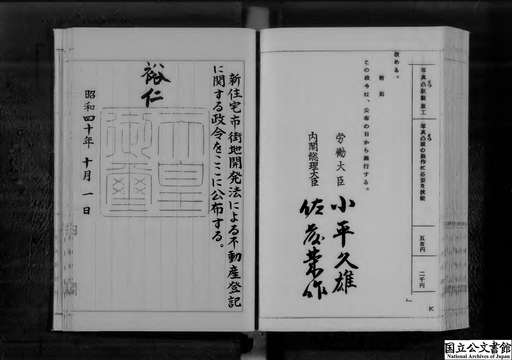 写真凸版製版工
写真凸版の製作に必要な技能
五百円
二千円
に
改める。
附則
この政令は、公布の日から施行する。
労働大臣 小平久雄
内閣総理大臣 佐藤榮作
新住宅市街地開発法による不動産登記
に関する政令をここに公布する。
裕仁
天皇
御璽
昭和四十年十月一日
国立公文書館
National Archives of Japan